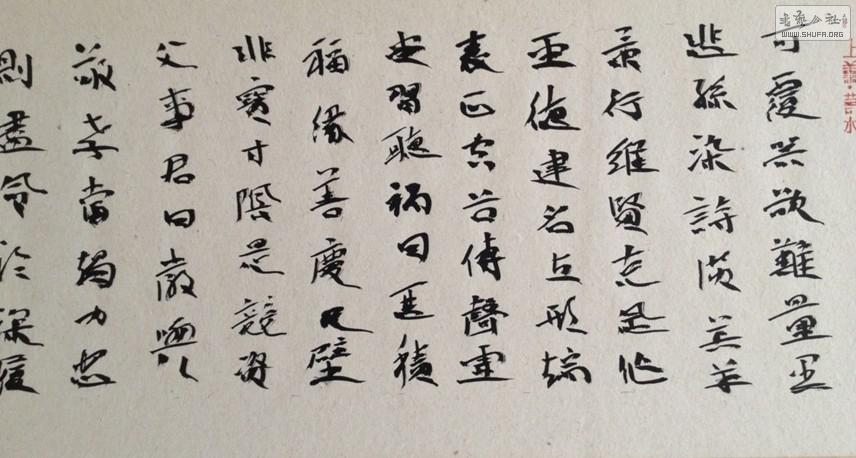 书艺公社
WWW.SHUFA.ORG
上善若水
可覆器欲難量墨
悲絲染詩讚羔羊
景行維賢克念作
聖德建名立形端
表正空谷傳聲虛
堂習聽禍因惡積
福緣善慶尺璧
非寶寸陰是競資
父事君曰嚴與
敬孝當竭力忠
則盡命臨深履